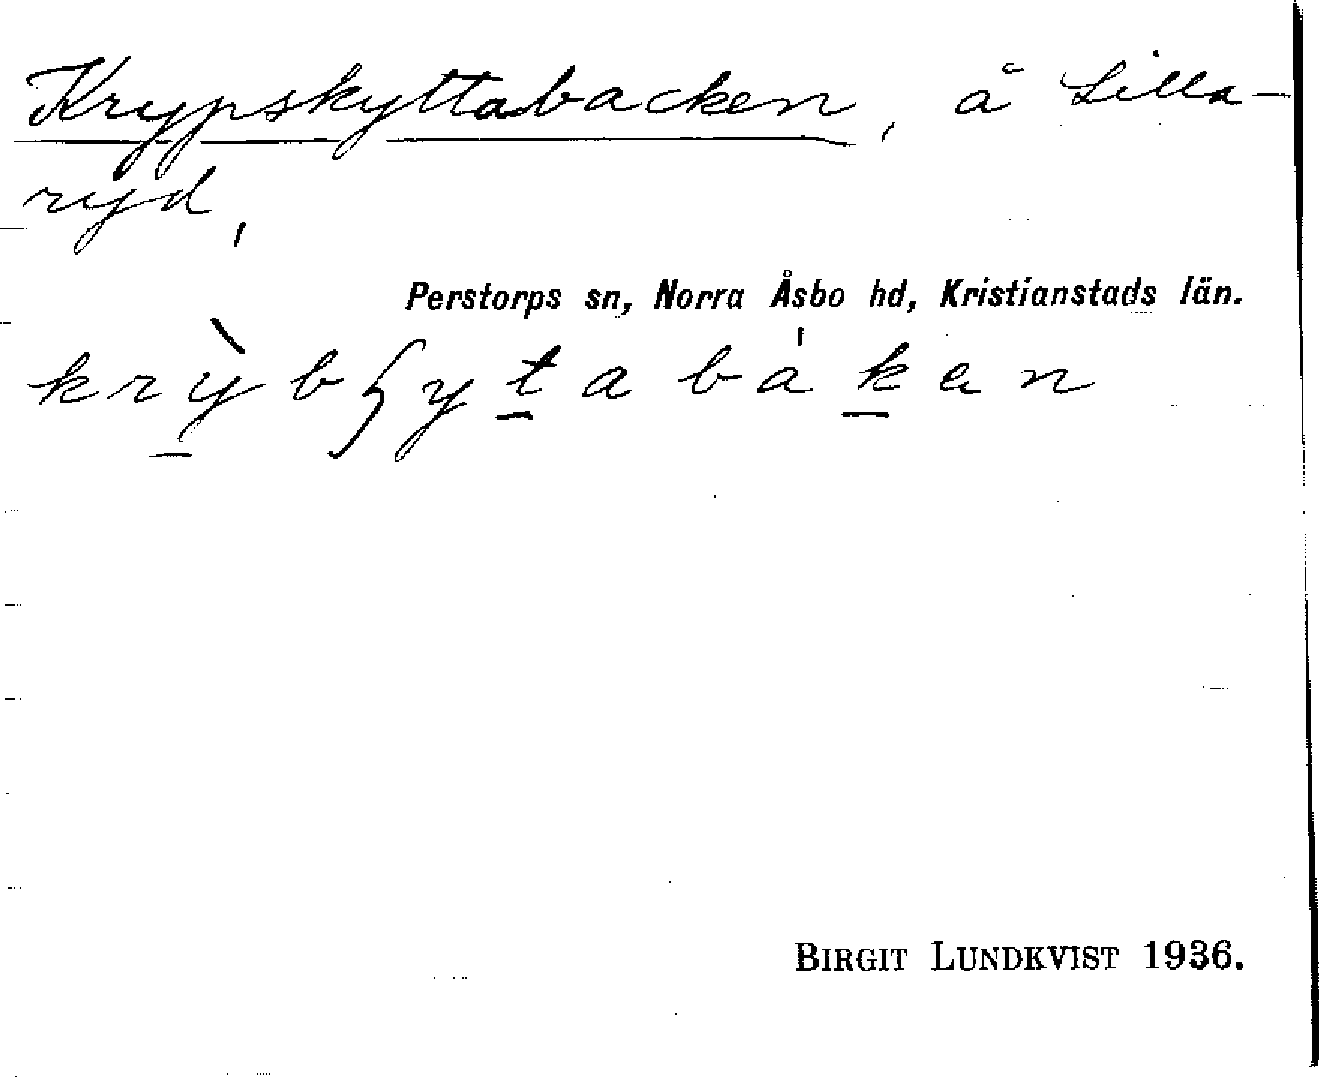 Krypskyttabacken, å Lilla-
ryd,
Perstorps sn, Norra Åsbo hd, Kristianstads län.
krỳ̠bʃyt̠abák̠en
BIRGIT LUNDKVIST 1936.